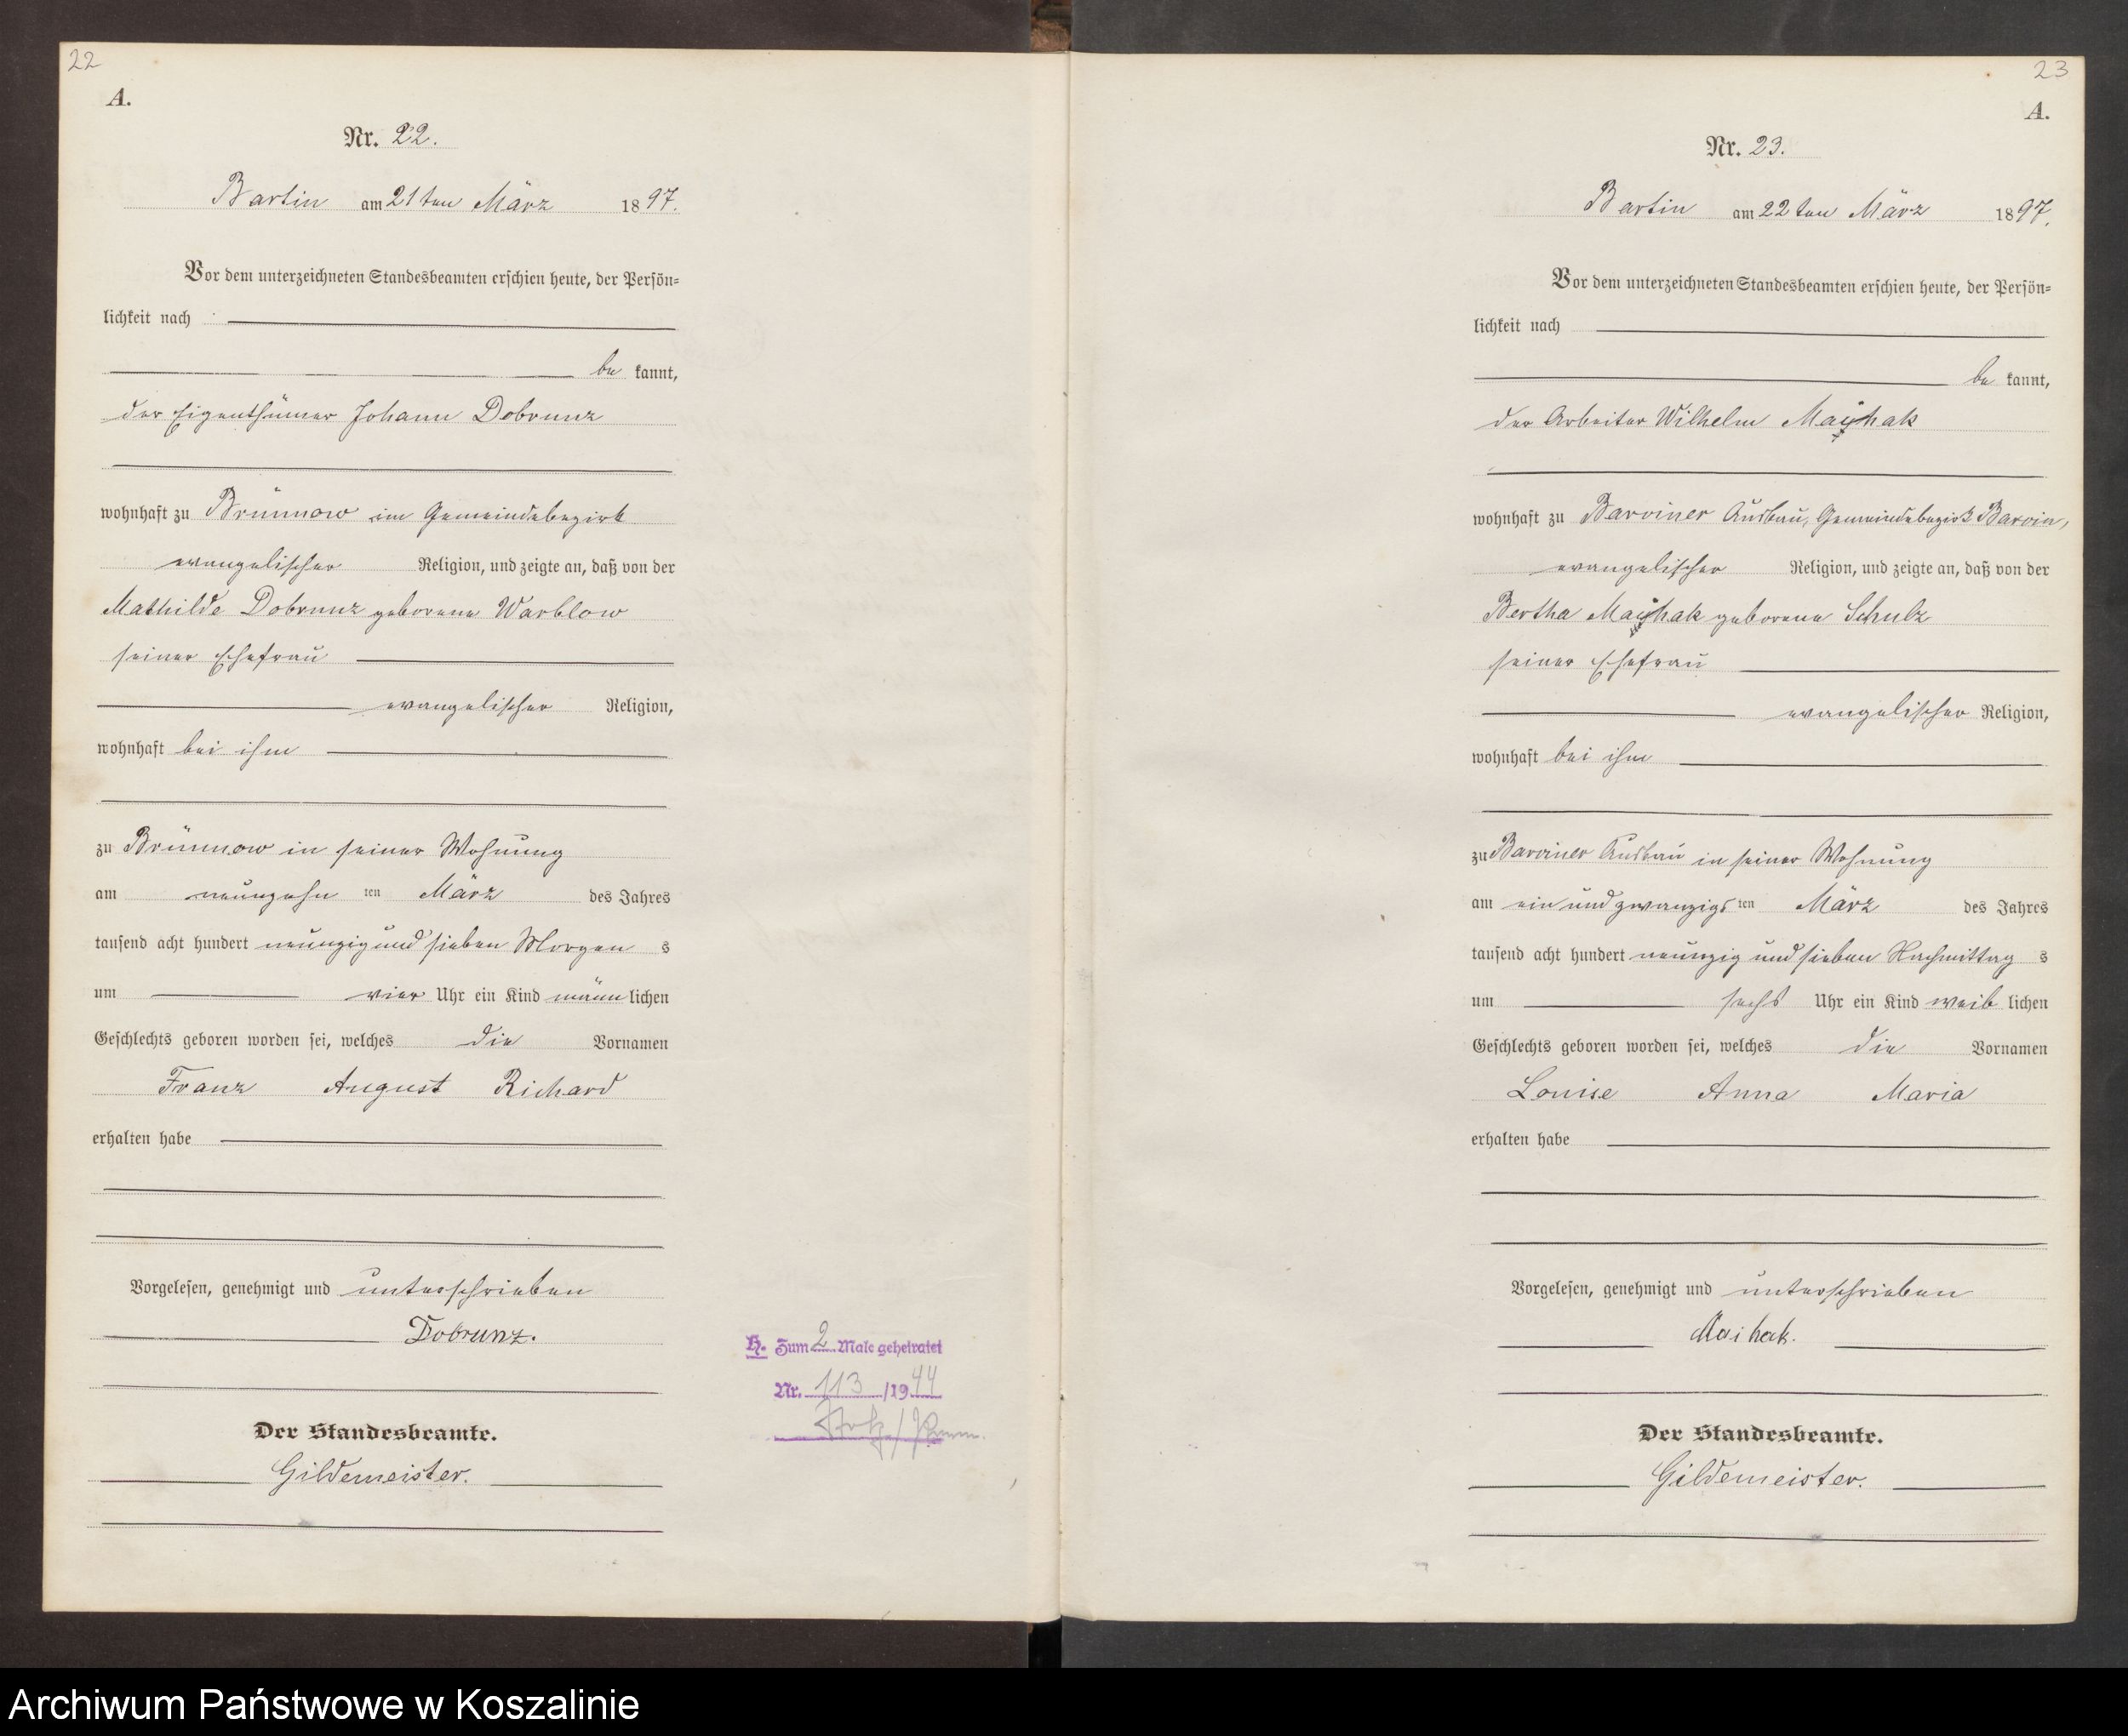 22
A.
Nr. 22.
Bartin am 21ten März 1897.
Vor dem unterzeichneten Standesbeamten erschien heute, der Persön=
lichkeit nach
be kannt,
der Eigenthümer Johann Dobrunz
wohnhaft zu Brünnow im Gemeindebezirk
evangelischer Religion, und zeigte an, daß von der
Mathilde Dobrunz geborene Warblow
seiner Ehefrau
evangelischer Religion,
wohnhaft bei ihm
zu Brünnow in seiner Wohnung
am neunzehn ten März des Jahres
tausend acht hundert neunzig und sieben Morgen s
um vier Uhr ein Kind männ lichen
Geschlechts geboren worden sei, welches die Vornamen
Franz August Richard
erhalten habe
Vorgelesen, genehmigt und unterschrieben
Dobrunz.
Der Standesbeamte.
Gildemeister.
H. Zum 2 Male geheiratet
Nr. 113 /1944
23
A.
Nr. 23.
Bartin am 22ten März 1897.
Vor dem unterzeichneten Standesbeamten erschien heute, der Persön=
lichkeit nach
be kannt,
der Arbeiter Wilhelm Maihak
wohnhaft zu Barviner Ausbau, Gemeindebezirk Barvin,
evangelischer Religion, und zeigte an, daß von der
Bertha Maihak geborene Schulz
seiner Ehefrau
evangelischer Religion,
wohnhaft bei ihm
zu Barviner Ausbau in seiner Wohnung
am ein und zwanzigs ten März des Jahres
tausend acht hundert neunzig und sieben Nachmittag s
um sechs Uhr ein Kind weib lichen
Geschlechts geboren worden sei, welches die Vornamen
Louise Anna Maria
erhalten habe
Vorgelesen, genehmigt und unterschrieben
Maihak.
Der Standesbeamte.
Gildemeister.
Archiwum Państwowe w Koszalinie